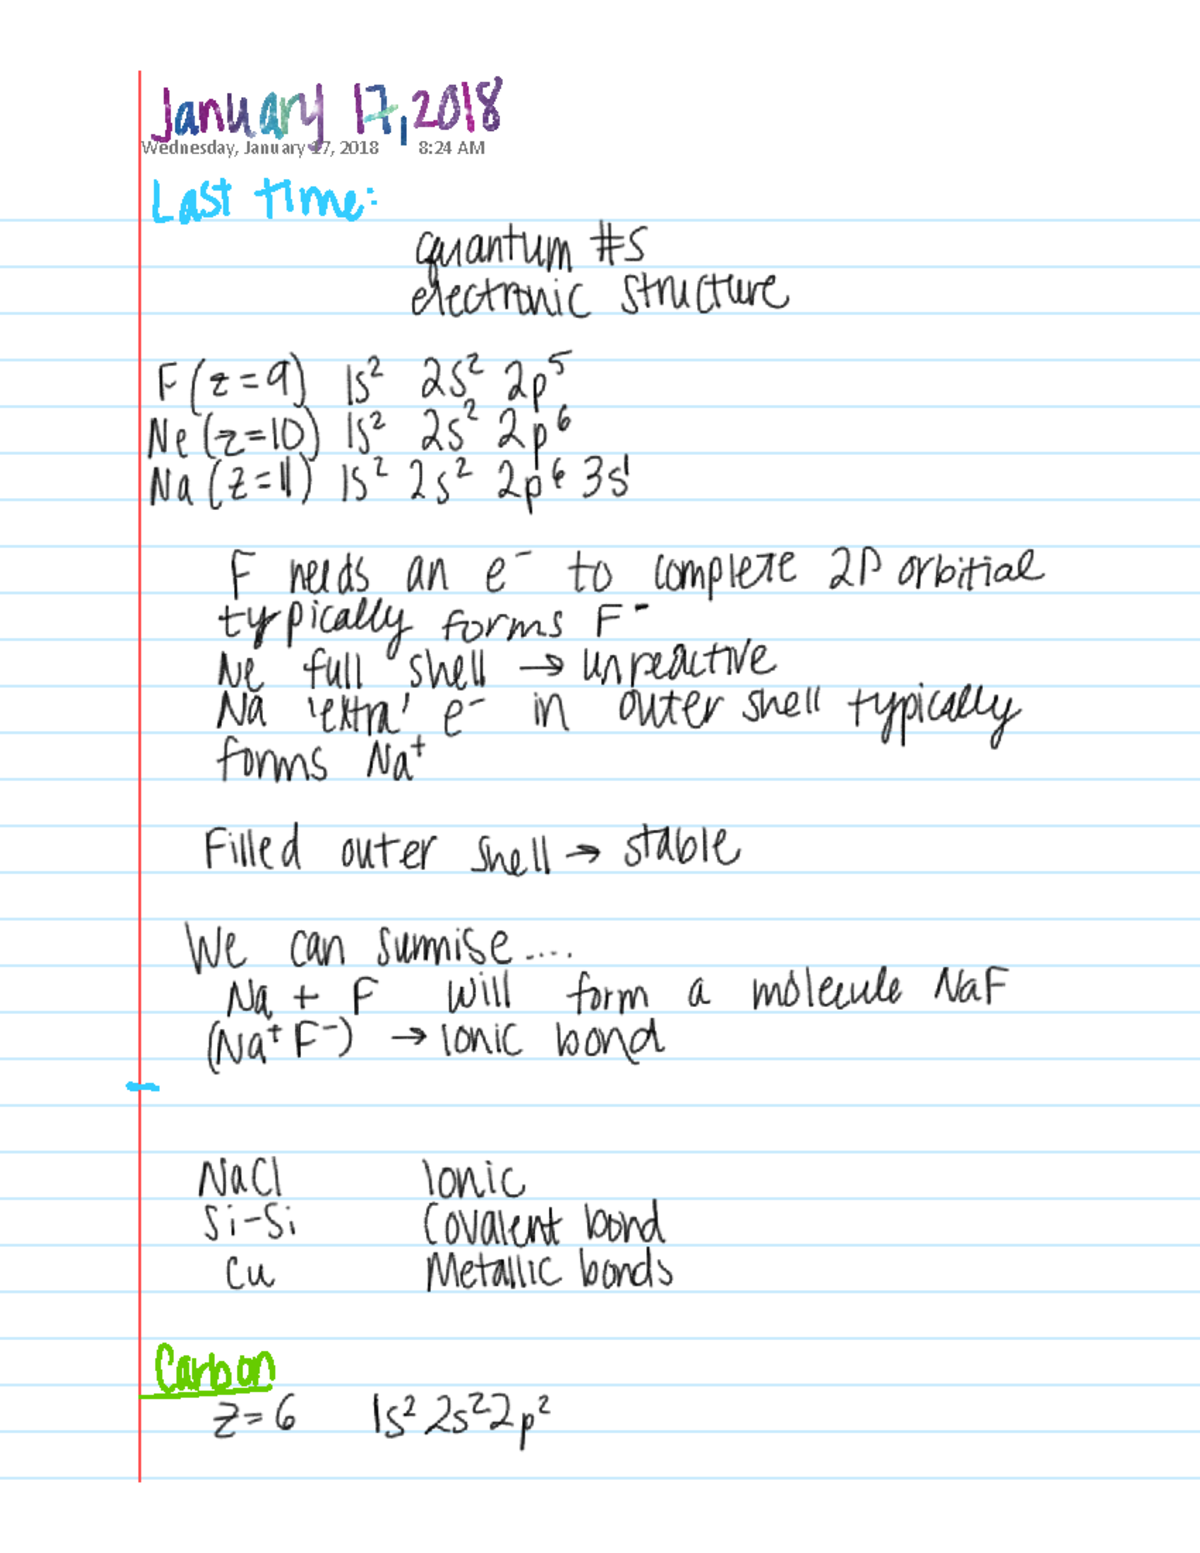 January 17, 2018
Wednesday, January 17, 2018 8:24 AM
Last time:
quantum #s
electronic structure
F (z=9) 1s² 2s² 2p⁵
Ne (z=10) 1s² 2s² 2p⁶
Na (z=11) 1s² 2s² 2p⁶ 3s¹
F needs an e⁻ to complete 2p orbitial
typically forms F⁻
Ne full shell → unreactive
Na 'extra' e⁻ in outer shell typically
forms Na⁺
Filled outer shell → stable
We can surmise....
Na + F will form a molecule NaF
(Na⁺ F⁻) → Ionic bond
NaCl Ionic
Si-Si Covalent bond
Cu Metallic bonds
Carbon
z=6 1s² 2s² 2p²